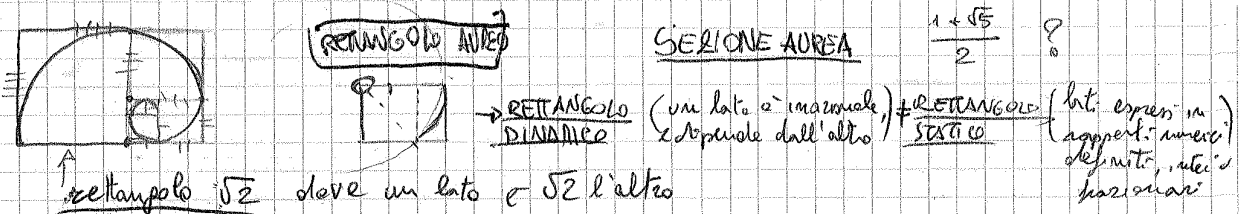 RETTANGOLO AUREO
SEZIONE AUREA
1 + √5
2
?
→ RETTANGOLO DINAMICO (un lato è irrazionale, e dipende dall'altro) ≠ RETTANGOLO STATICO (lati espressi in rapporti numerici definiti, interi o frazionari)
rettangolo √2 dove un lato è √2 l'altro